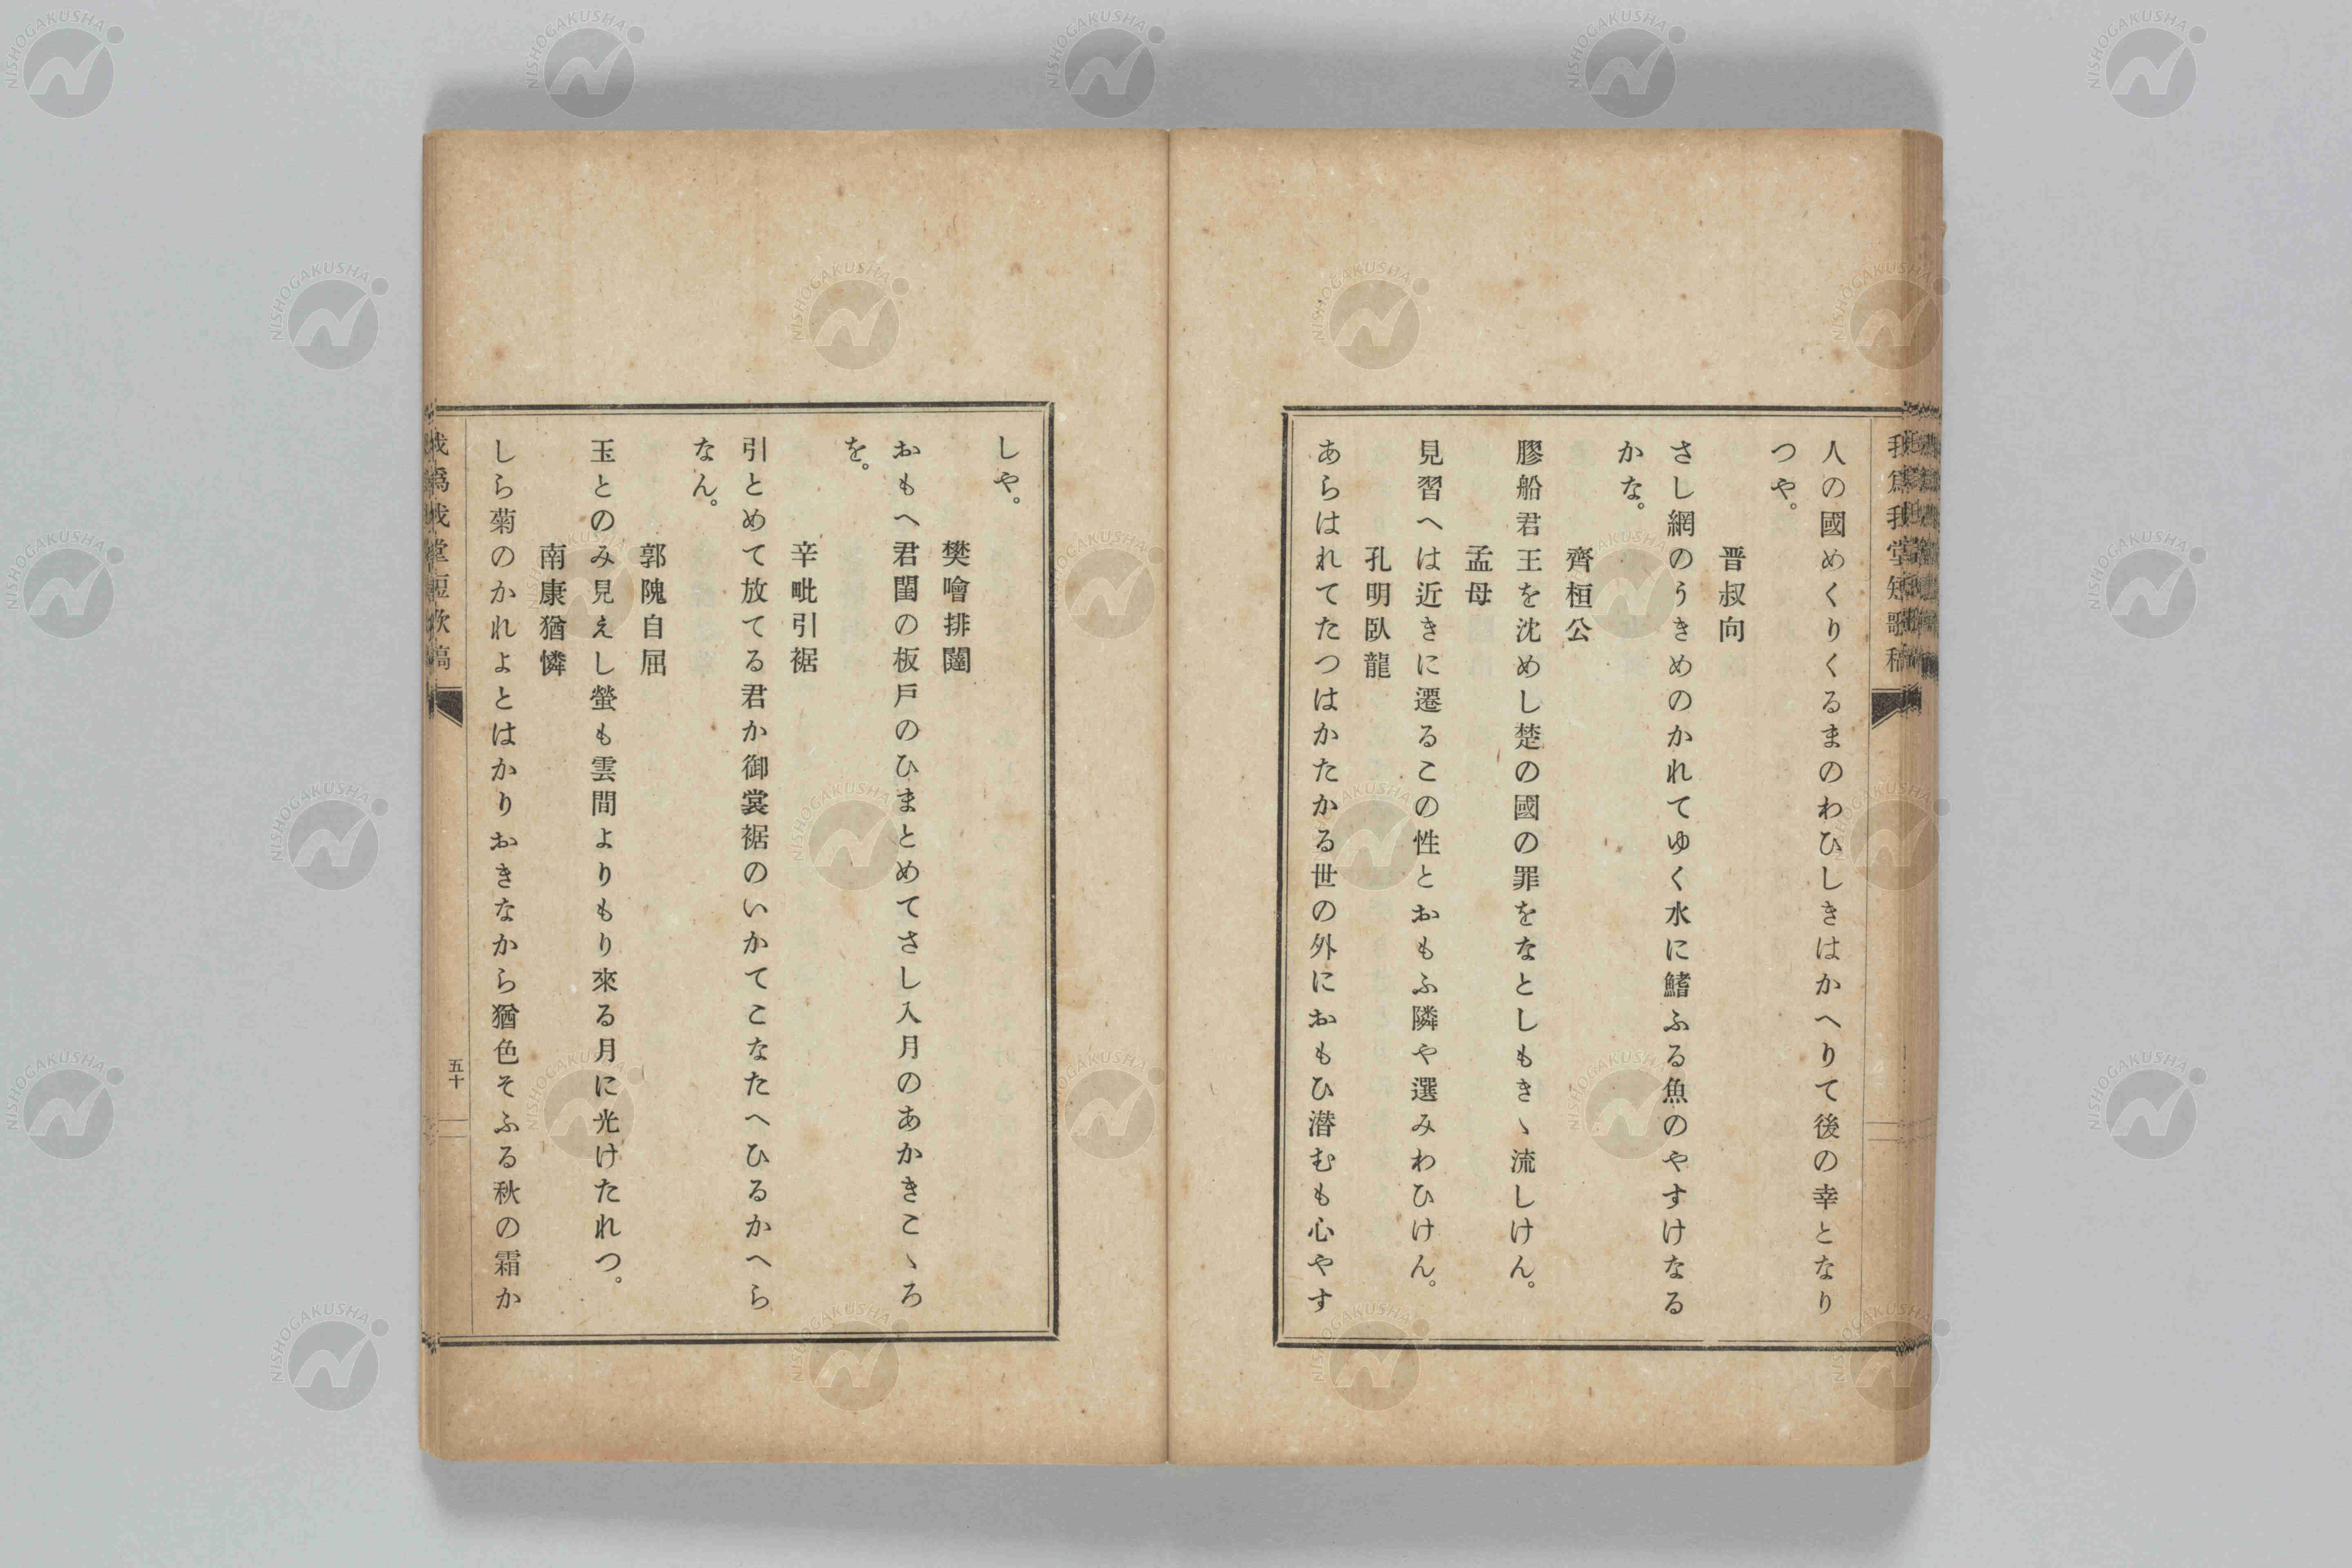 我爲我堂短歌稿
人の國めくりくるまのわひしきはかへりて後の幸となり
つや。
晋叔向
さし網のうきめのかれてゆく水に鰭ふる魚のやすけなる
かな。
齊桓公
膠船君王を沈めし楚の國の罪をなとしもきゝ流しけん。
孟母
見習へは近きに遷るこの性とおもふ隣や選みわひけん。
孔明臥龍
あらはれてたつはかたかる世の外におもひ潜むも心やす
しや。
樊噲排闥
おもへ君閨の板戸のひまとめてさし入月のあかきこゝろ
を。
辛毗引裾
引とめて放てる君か御裳裾のいかてこなたへひるかへら
なん。
郭隗自屈
玉とのみ見えし螢も雲間よりもり來る月に光けたれつ。
南康猶憐
しら菊のかれよとはかりおきなから猶色そふる秋の霜か
我爲我堂短歌稿
五十
NISHOGAKUSHA